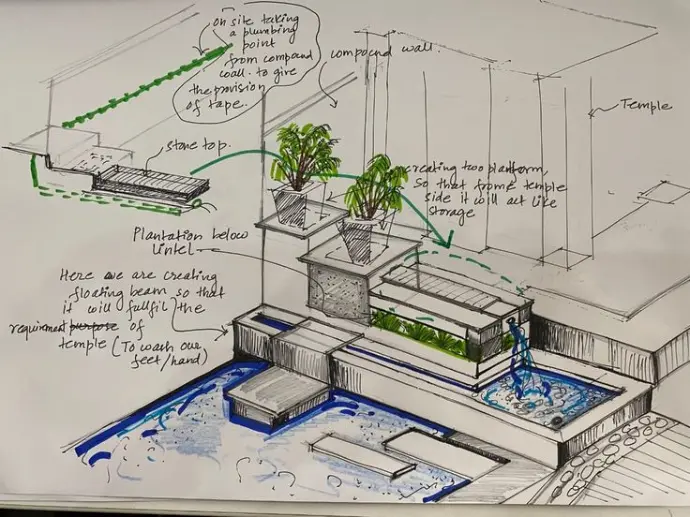 on site taking
a plumbing
point
from compound
wall. to give
the provision
of tape.
compound wall
Temple
stone top.
creating two platform,
so that frome temple
side it will act like
storage
Plantation below
lintel
Here we are creating
floating beam so that
it will fullfil the
requirment purpose of
temple (To wash our
feet/hand)